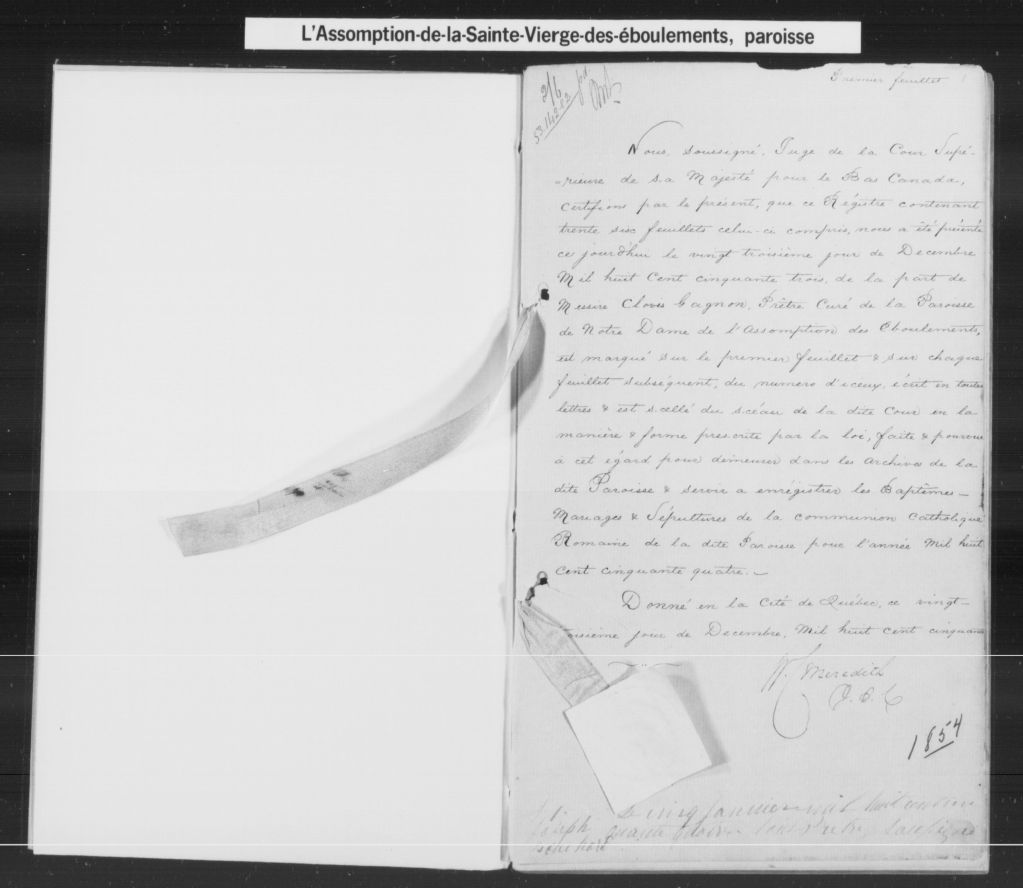 L'Assomption-de-la-Sainte-Vierge-des-éboulements, paroisse
Premier feuillet
2/6
Nous, soussigné, Juge de la Cour Supé-
-rieure de Sa Majesté pour le Bas Canada,
Certifions par le présent, que ce Régistre contenant
trente six feuillets celui-ci compris, nous a été présenté
ce jourd'hui le vingt troisième jour de Decembre
Mil huit Cent cinquante trois, de la part de
Messire Clovis Gagnon, Prêtre Curé de la Paroisse
de Notre Dame de l'Assomption des Eboulements,
est marqué sur le premier feuillet & sur chaque
feuillet subséquent, du numero d'iceux, écrit en toutes
lettres & est scellé du scéau de la dite Cour en la
manière & forme prescrite par la loi, faite & pourvue
à cet égard pour demeurer dans les archives de la
dite Paroisse & servir a enrégistrer les Baptêmes —
Mariages & Sépultures de la communion Catholique
Romaine de la dite Paroisse pour l'année Mil huit
Cent cinquante quatre. —
Donné en la Cité de Québec, ce vingt-
troisième jour de Decembre, Mil huit cent cinquante
W. Meredith
J. S. C
1854
S. 1. Le cinq Janvier mil huit cent cin
Joseph quante quatre